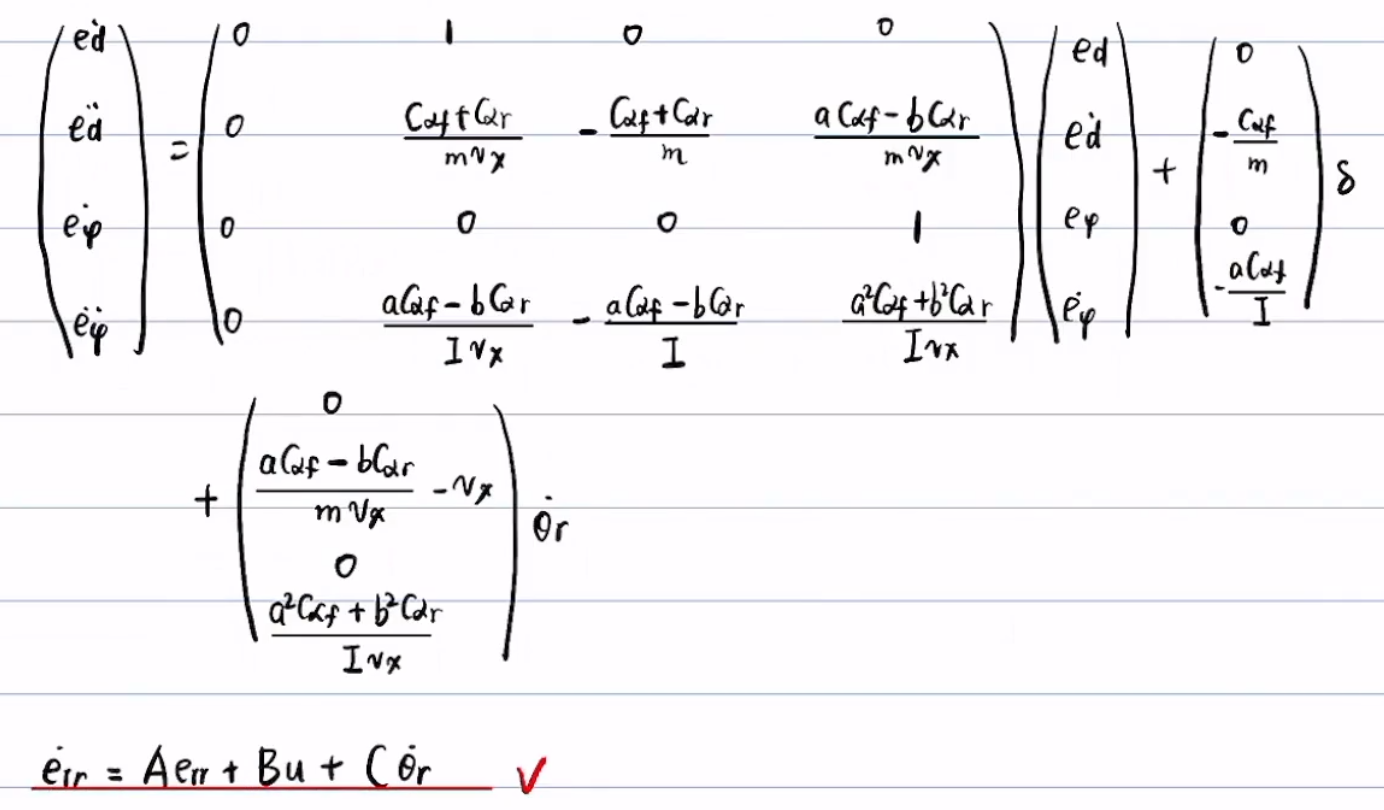 $$\begin{pmatrix} \dot{e}_d \\ \ddot{e}_d \\ \dot{e}_\varphi \\ \ddot{e}_\varphi \end{pmatrix} = \begin{pmatrix} 0 & 1 & 0 & 0 \\ 0 & \frac{C_{\alpha f}+C_{\alpha r}}{m v_x} & -\frac{C_{\alpha f}+C_{\alpha r}}{m} & \frac{aC_{\alpha f}-bC_{\alpha r}}{m v_x} \\ 0 & 0 & 0 & 1 \\ 0 & \frac{aC_{\alpha f}-bC_{\alpha r}}{I v_x} & -\frac{aC_{\alpha f}-bC_{\alpha r}}{I} & \frac{a^2C_{\alpha f}+b^2C_{\alpha r}}{I v_x} \end{pmatrix} \begin{pmatrix} e_d \\ \dot{e}_d \\ e_\varphi \\ \dot{e}_\varphi \end{pmatrix} + \begin{pmatrix} 0 \\ -\frac{C_{\alpha f}}{m} \\ 0 \\ -\frac{aC_{\alpha f}}{I} \end{pmatrix} \delta$$
$$+ \begin{pmatrix} 0 \\ \frac{aC_{\alpha f}-bC_{\alpha r}}{m v_x} - v_x \\ 0 \\ \frac{a^2C_{\alpha f}+b^2C_{\alpha r}}{I v_x} \end{pmatrix} \dot{\theta}_r$$
$$\dot{e}_{rr} = A e_{rr} + B u + C \dot{\theta}_r \quad ✓$$